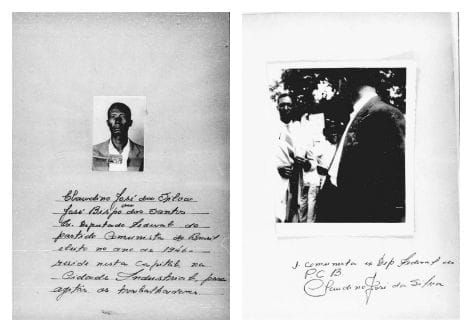 Claudino José da Silva
ou
José Bispo dos Santos
Ex. Deputado Federal do
partido Comunista do Brasil
eleito no ano de 1946 -
reside nesta Capital na
Cidade Industrial, para
agitar os trabalhadores.
comunista ex Dep Federal do
P C B
Claudino José da Silva